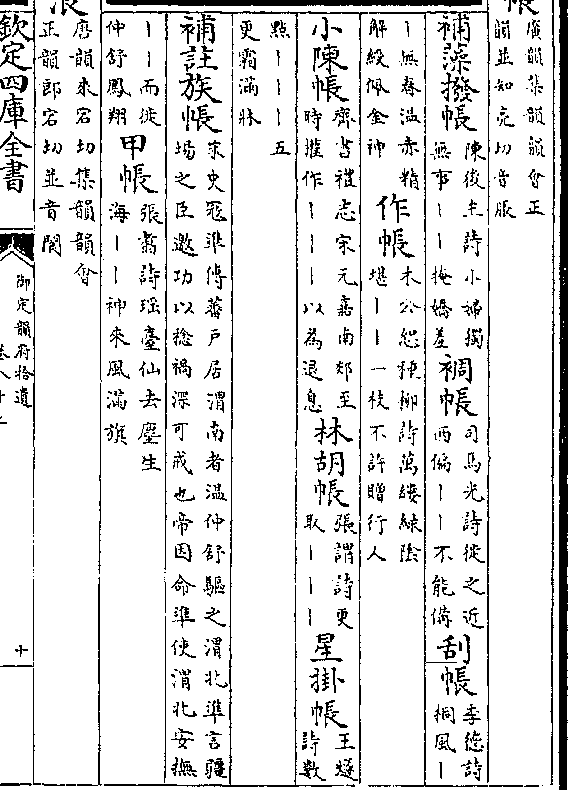 帳
廣韻集韻韻會正
韻並知亮切音脹
補藻撥帳 陳後主詩小婦獨
無事丨丨掩嬌羞
裯帳 司馬光詩從之近
西偏丨丨不能備
刮帳 李德詩
桐風丨
丨無春温亦精
解綬佩金神
作帳 木公恕種柳詩萬縷緑陰
堪丨丨一枝不許贈行人
小陳帳 齊書禮志宋元嘉南郊至
時權作丨丨丨以為退息
林胡帳 張謂詩更
取丨丨丨
星掛帳 王燧
詩數
點丨丨丨五
更霜滿牀
補註族帳 宋史冦準傳蕃戸居渭南者温仲舒驅之渭北準言疆
場之臣邀功以稔禍深可戒也帝因命準使渭北安撫
丨丨而徙
仲舒鳳翔
甲帳 張翥詩瑶臺仙去塵生
海丨丨神來風滿旗
浪
唐韻來宕切集韻韻會
正韻郎宕切並音閬
欽定四庫全書
御定韻府拾遺
卷八十
十